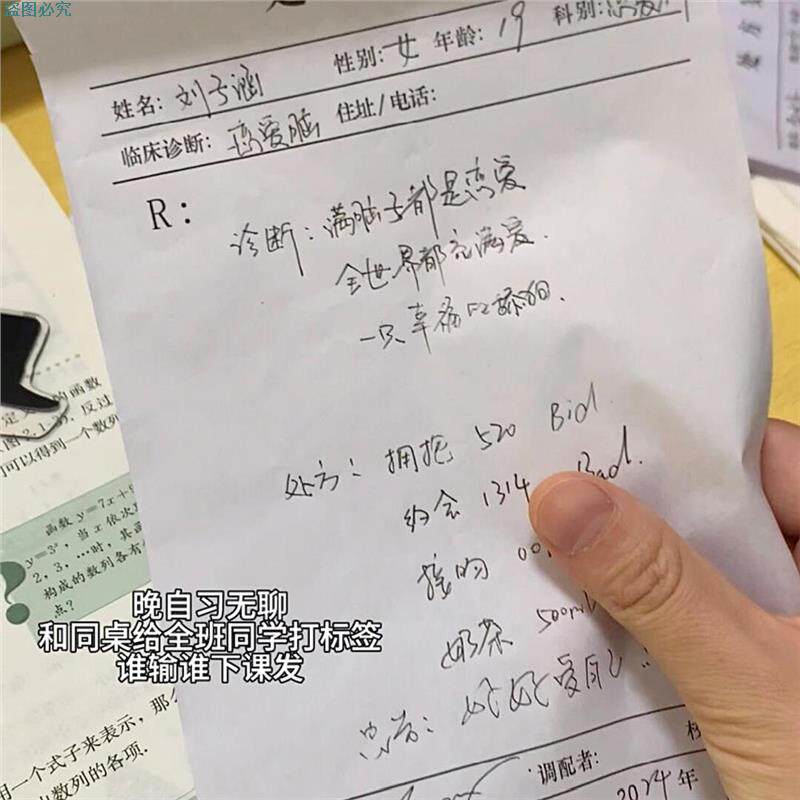 盗图必究
性别:女 年龄:19 科别:恋爱科
姓名:刘子涵
临床诊断:恋爱脑 住址/电话:
R:
诊断:满脑子都是恋爱
全世界都充满爱.
一只幸福的舔狗.
处方:拥抱 520 Bid.
约会 1314
接吻
奶茶 500ml
好好爱自己
调配者:
2024年
的函数
反过
可以得到一个数列
函数 y=7x+9
y=3ˣ,当 x 依次
2,3,…时,其
构成的数列各有
点?
晚自习无聊
和同桌给全班同学打标签
谁输谁下课发
用一个式子来表示,那么
数列的各项.